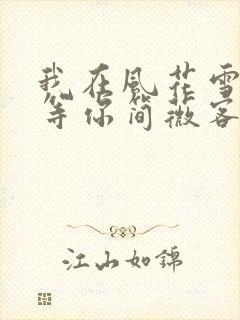 我在风花雪
等你简微客
江山如锦